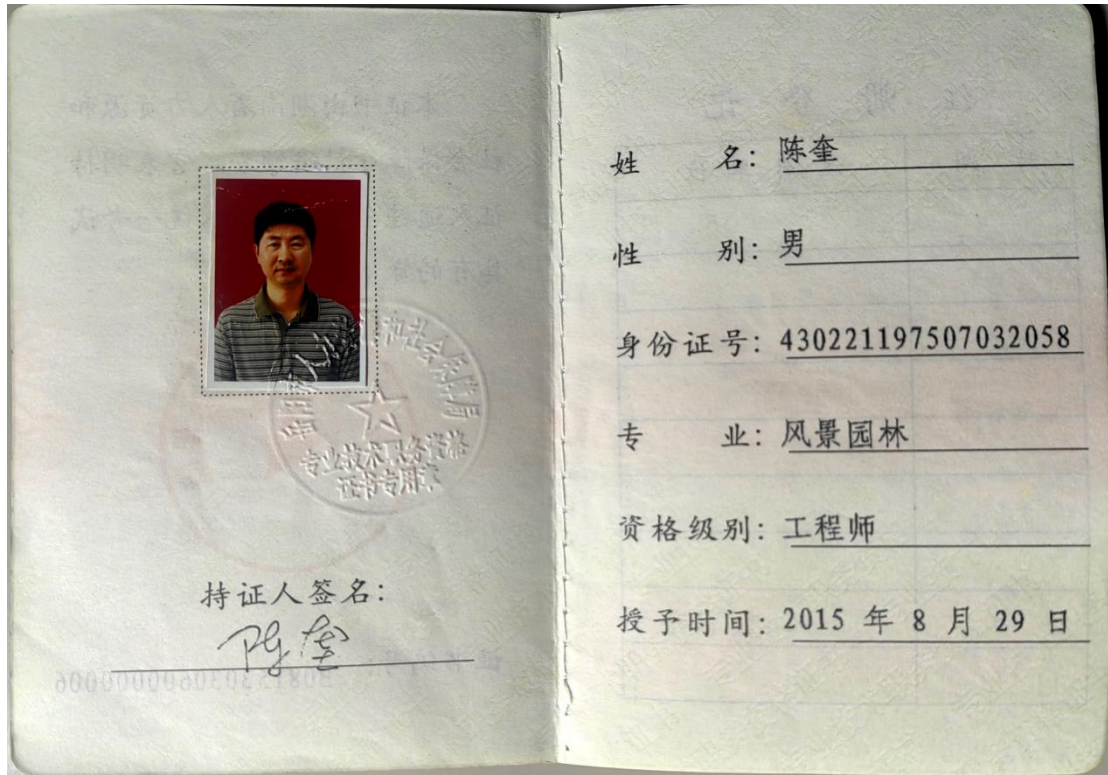 持证人签名:
陈奎
专业技术职务资格
证书专用章
姓 名: 陈奎
性 别: 男
身份证号: 430221197507032058
专 业: 风景园林
资格级别: 工程师
授予时间: 2015 年 8 月 29 日